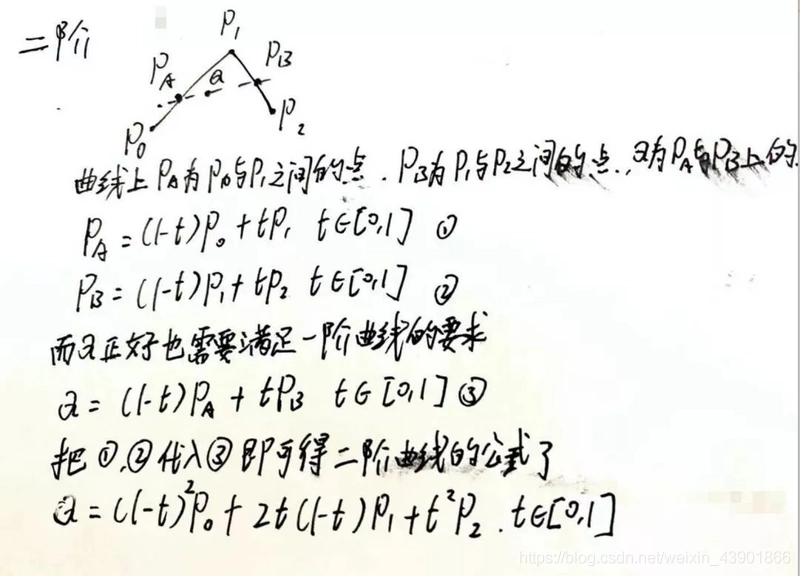 二阶
P₁
P_A
a
P_B
P₀
P₂
曲线上P_A为P₀与P₁之间的点.P_B为P₁与P₂之间的点.,a为P_A与P_B上的
P_A=(1-t)P₀+tP₁ t∈[0,1] ①
P_B=(1-t)P₁+tP₂ t∈[0,1] ②
而a正好也需要满足一阶曲线的要求
a=(1-t)P_A+tP_B t∈[0,1]③
把①,②代入③即可得二阶曲线的公式了
a=(1-t)²P₀+2t(1-t)P₁+t²P₂.t∈[0,1]
https://blog.csdn.net/weixin_43901866